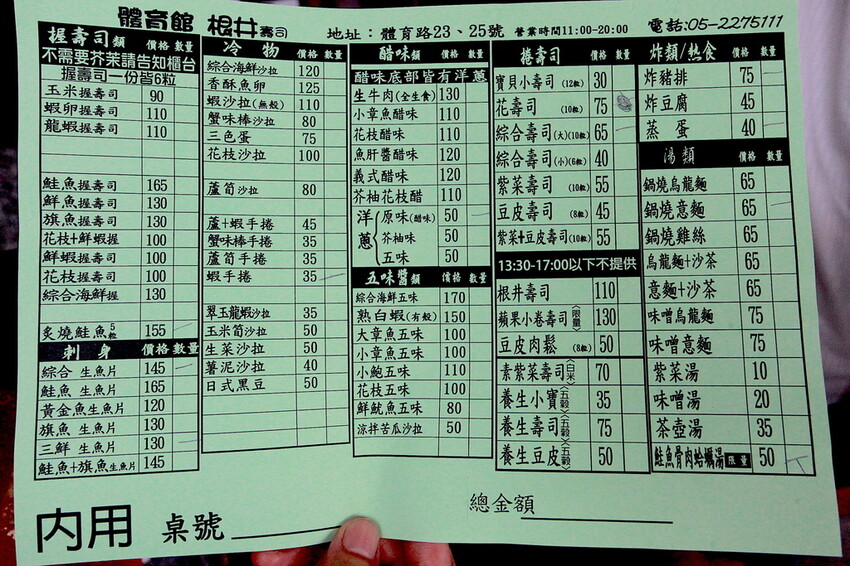 體育館 根井壽司 地址：體育路23、25號 營業時間11:00-20:00 電話:05-2275111
握壽司類 價格 數量
不需要芥茉請告知櫃台
握壽司一份皆6粒
玉米握壽司 90
蝦卵握壽司 110
龍蝦握壽司 110
鮭魚握壽司 165
鮮魚握壽司 130
旗魚握壽司 130
花枝+鮮蝦握 100
鮮蝦握壽司 100
花枝握壽司 100
綜合海鮮握 130
炙燒鮭魚5粒 155
刺身 價格 數量
綜合 生魚片 145
鮭魚 生魚片 165
黃金魚 生魚片 120
旗魚 生魚片 130
三鮮 生魚片 130
鮭魚+旗魚生魚片 145
冷物 價格 數量
綜合海鮮沙拉 120
香酥魚卵 125
蝦沙拉(無殼) 110
蟹味棒沙拉 80
三色蛋 75
花枝沙拉 100
蘆筍沙拉 80
蘆+蝦手捲 45
蟹味棒手捲 35
蘆筍手捲 35
蝦手捲 35
翠玉龍蝦沙拉 35
玉米筍沙拉 50
生菜沙拉 50
薯泥沙拉 40
日式黑豆 50
醋味類 價格 數量
醋味底部皆有洋蔥
生牛肉(全生食) 130
小章魚醋味 110
花枝醋味 110
魚肝醬醋味 120
義式醋味 120
芥柚花枝醋 110
洋蔥
原味(醋味) 50
芥柚味 50
五味 50
五味醬類 價格 數量
綜合海鮮五味 170
熟白蝦(有殼) 150
大章魚五味 100
小章魚五味 100
小鮑五味 110
花枝五味 100
鮮魷魚五味 80
涼拌苦瓜沙拉 50
捲壽司 價格 數量
寶貝小壽司 (12粒) 30
花壽司 (10粒) 75
綜合壽司(大)(10粒) 65
綜合壽司(小)(6粒) 40
紫菜壽司 (10粒) 55
豆皮壽司 (8粒) 45
紫菜+豆皮壽司(10粒) 55
13:30-17:00以下不提供
根井壽司 110
蘋果小卷壽司〈限量〉 130
豆皮肉鬆 (8粒) 50
素紫菜壽司〈白米〉 70
養生小寶〈五穀〉 35
養生壽司〈五穀〉 75
養生豆皮〈五穀〉 50
炸類/熱食 價格 數量
炸豬排 75
炸豆腐 45
蒸蛋 40
湯類 價格 數量
鍋燒烏龍麵 65
鍋燒意麵 65
鍋燒雞絲 65
烏龍麵+沙茶 65
意麵+沙茶 65
味噌烏龍麵 75
味噌意麵 75
紫菜湯 10
味噌湯 20
茶壺湯 35
鮭魚骨肉蛤蠣湯 限量 50
內用 桌號
總金額